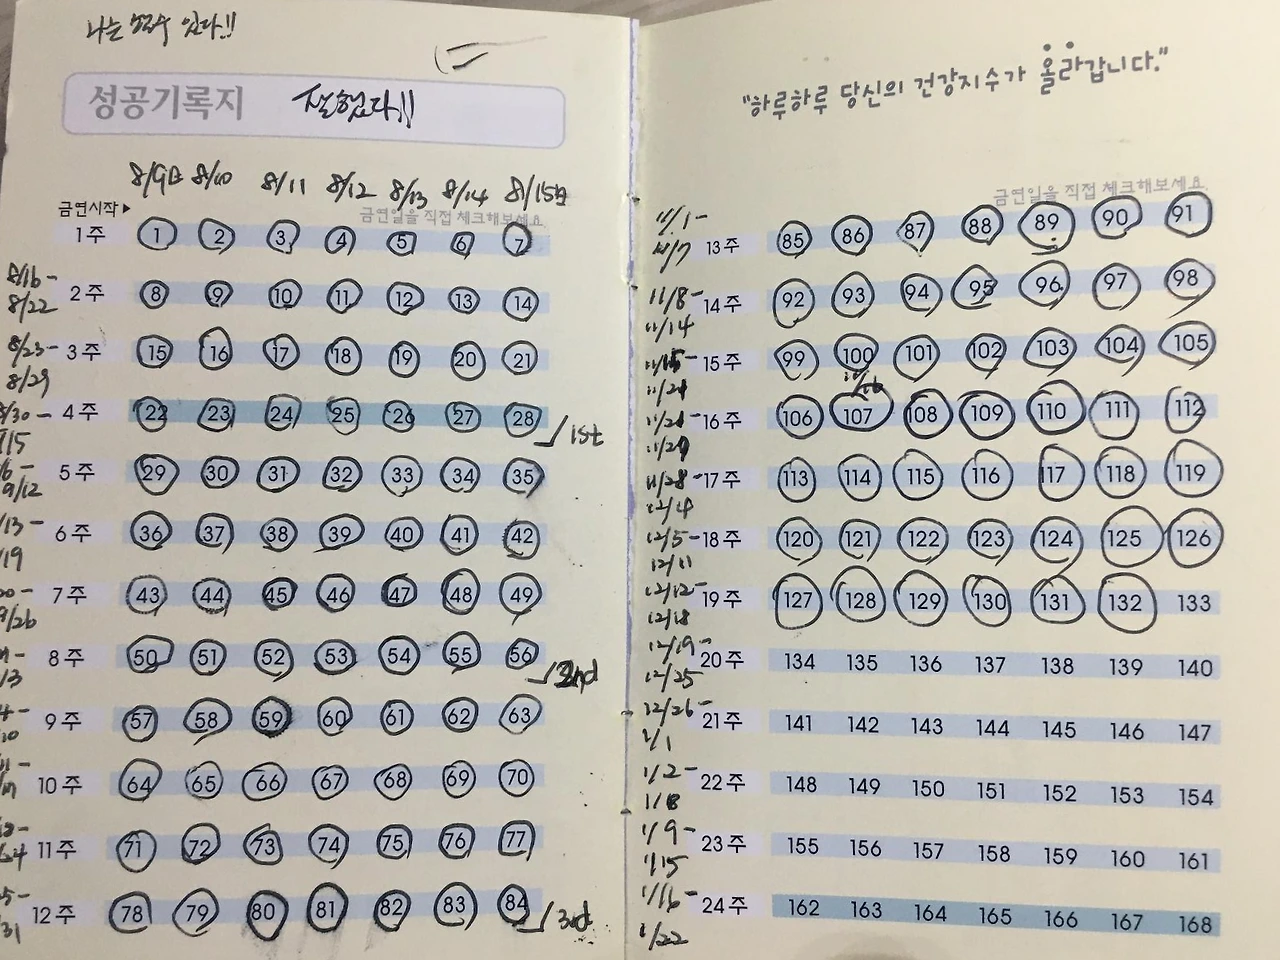 나는 할수 있다!!
성공기록지 잘했다!!
8/9日 8/10 8/11 8/12 8/13 8/14 8/15日
금연일을 직접 체크해보세요.
금연시작▶
1주 1 2 3 4 5 6 7
8/16-
8/22
2주 8 9 10 11 12 13 14
8/23-
8/29
3주 15 16 17 18 19 20 21
4주 22 23 24 25 26 27 28
1st
9/12
5주 29 30 31 32 33 34 35
6주 36 37 38 39 40 41 42
7주 43 44 45 46 47 48 49
8주 50 51 52 53 54 55 56
2nd
9주 57 58 59 60 61 62 63
10주 64 65 66 67 68 69 70
11주 71 72 73 74 75 76 77
12주 78 79 80 81 82 83 84
3rd
"하루하루 당신의 건강지수가 올라갑니다."
금연일을 직접 체크해보세요.
11/1-
11/7
13주 85 86 87 88 89 90 91
11/8-
11/14
14주 92 93 94 95 96 97 98
15주 99 100 101 102 103 104 105
16주 106 107 108 109 110 111 112
11/28-
12/4
17주 113 114 115 116 117 118 119
12/5-
12/11
18주 120 121 122 123 124 125 126
12/12-
12/18
19주 127 128 129 130 131 132 133
12/19-
12/25
20주 134 135 136 137 138 139 140
12/26-
1/1
21주 141 142 143 144 145 146 147
1/2-
1/8
22주 148 149 150 151 152 153 154
1/9-
1/15
23주 155 156 157 158 159 160 161
1/16-
1/22
24주 162 163 164 165 166 167 168